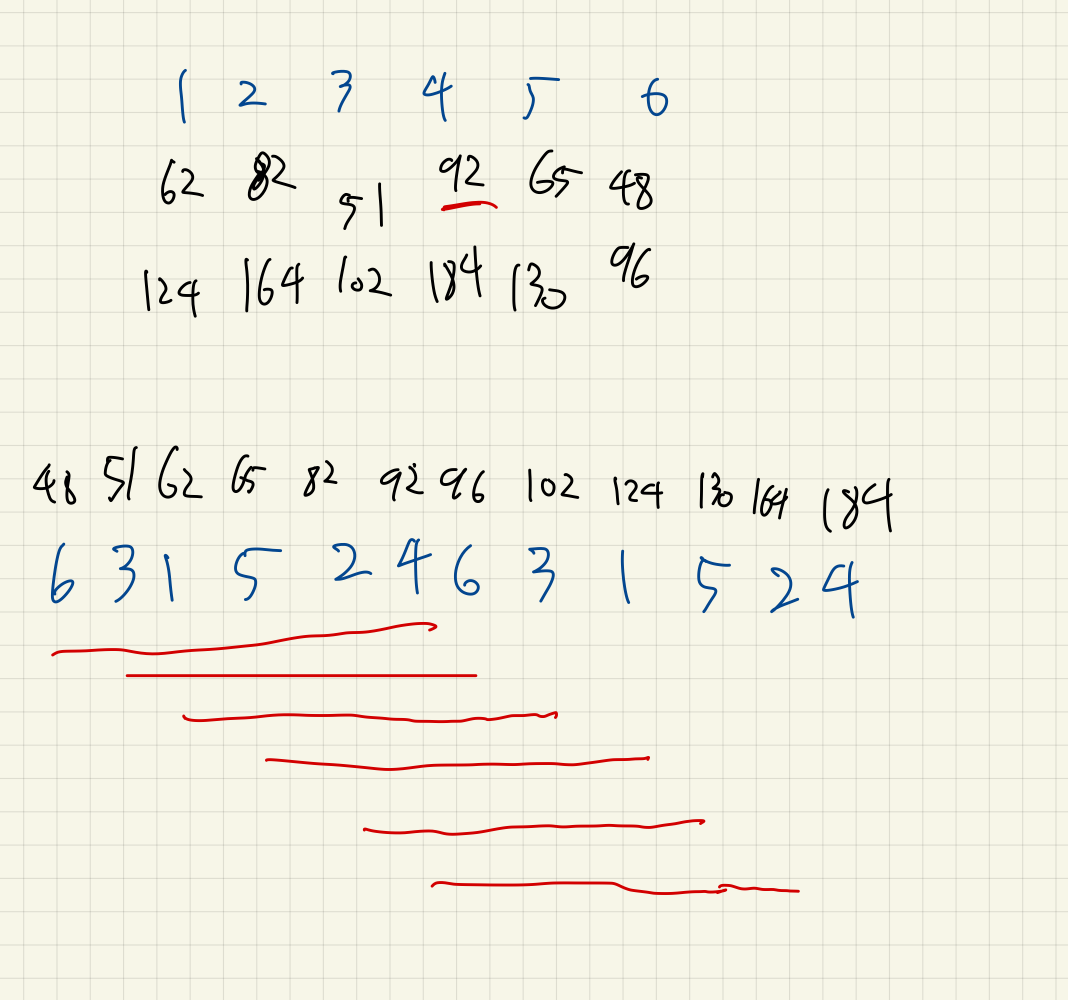 1 2 3 4 5 6
62 82 51 92 65 48
124 164 102 184 130 96
48 51 62 65 82 92 96 102 124 130 164 184
6 3 1 5 2 4 6 3 1 5 2 4